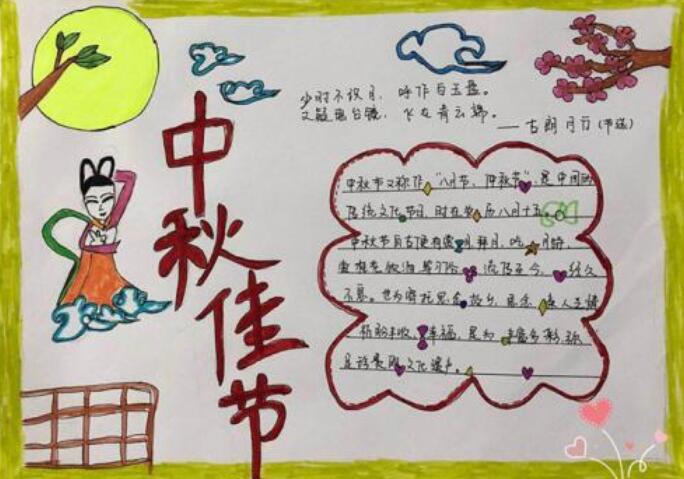 中秋佳节
少时不识月，呼作白玉盘。
又疑瑶台镜，飞在青云端。
——古朗月行(节选)
中秋节又称作“八月节、仲秋节”是中国的
传统文化节日，时在农历八月十五。
中秋节自古便有赏月、拜月、吃月饼、
流传至今，经久
不息。也为寄托思念故乡，思念亲人之情
祈盼丰收、幸福，是为丰富多彩，弥
足珍贵的文化遗产。